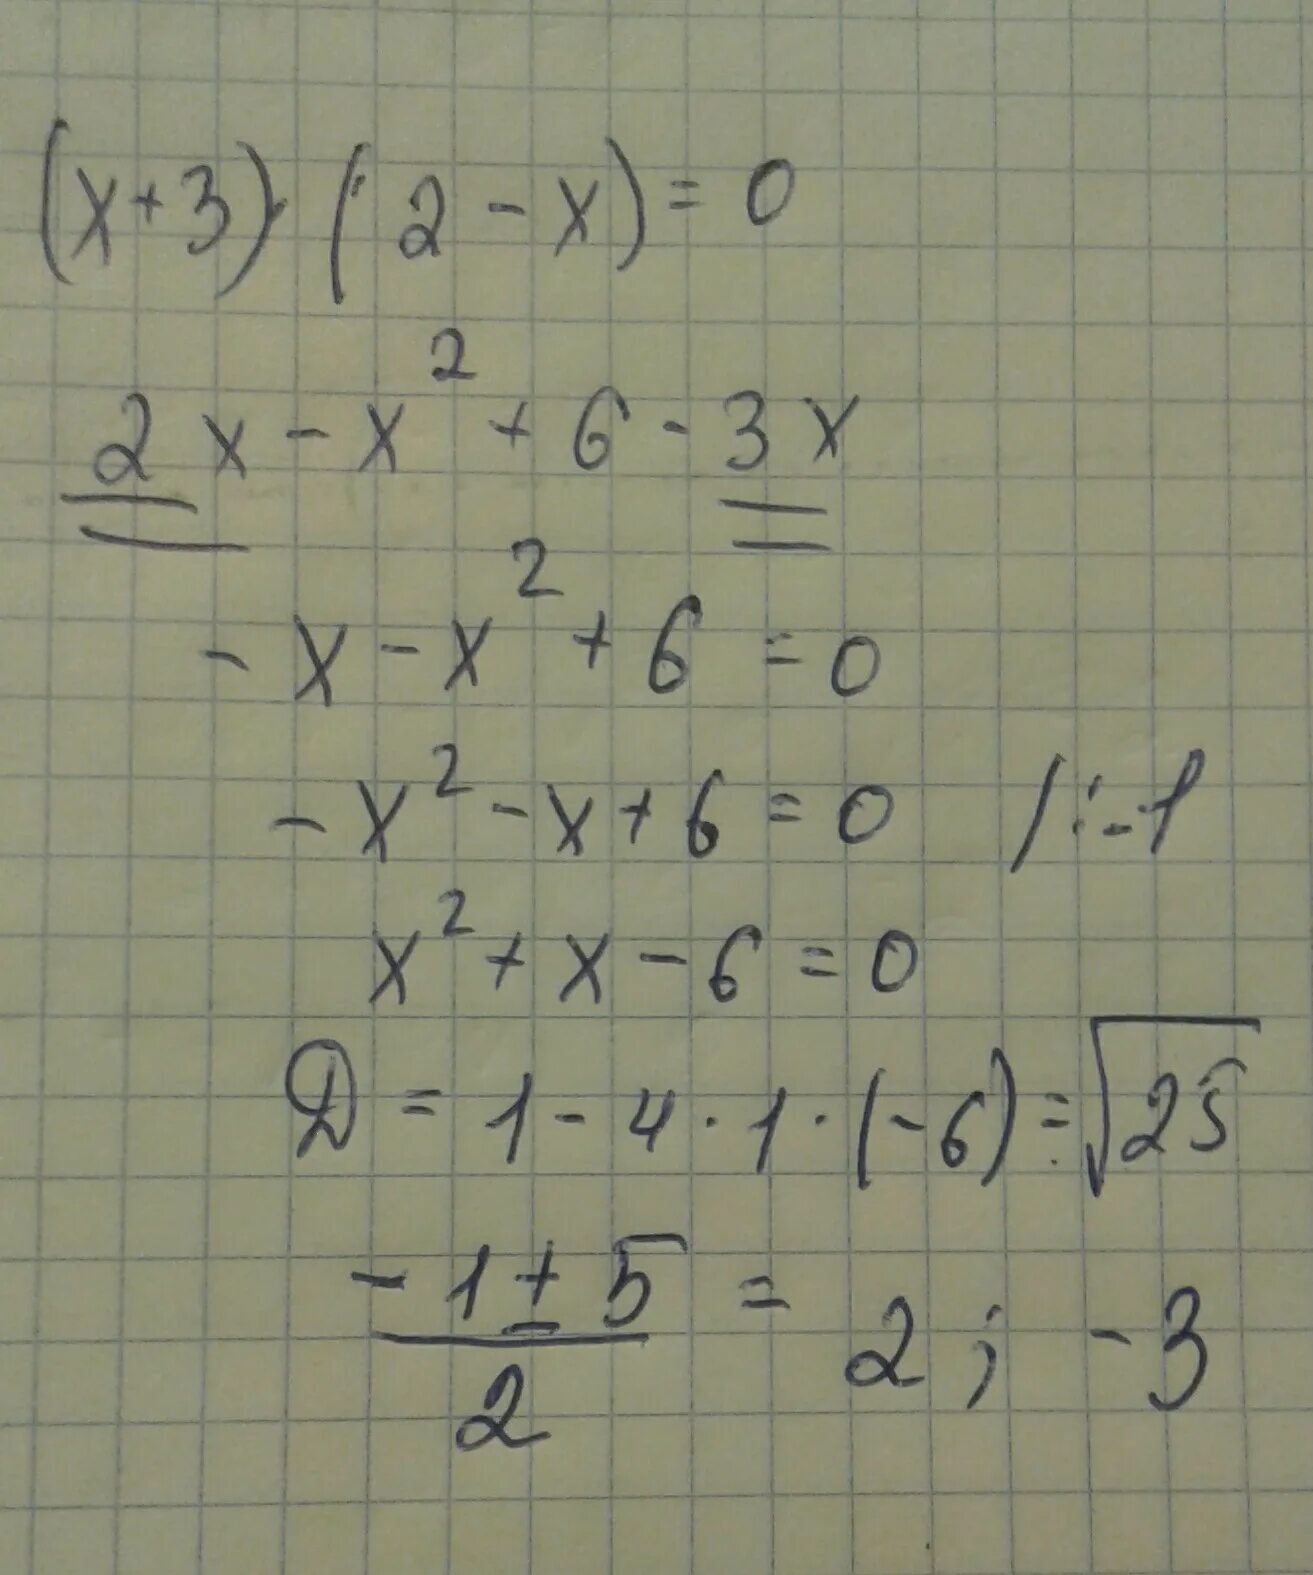 (x+3)·(2-x)=0
2x-x²+6-3x
-x-x²+6=0
-x²-x+6=0 /:-1
x²+x-6=0
D=1-4·1·(-6)=√25
-1±5
2
= 2; -3